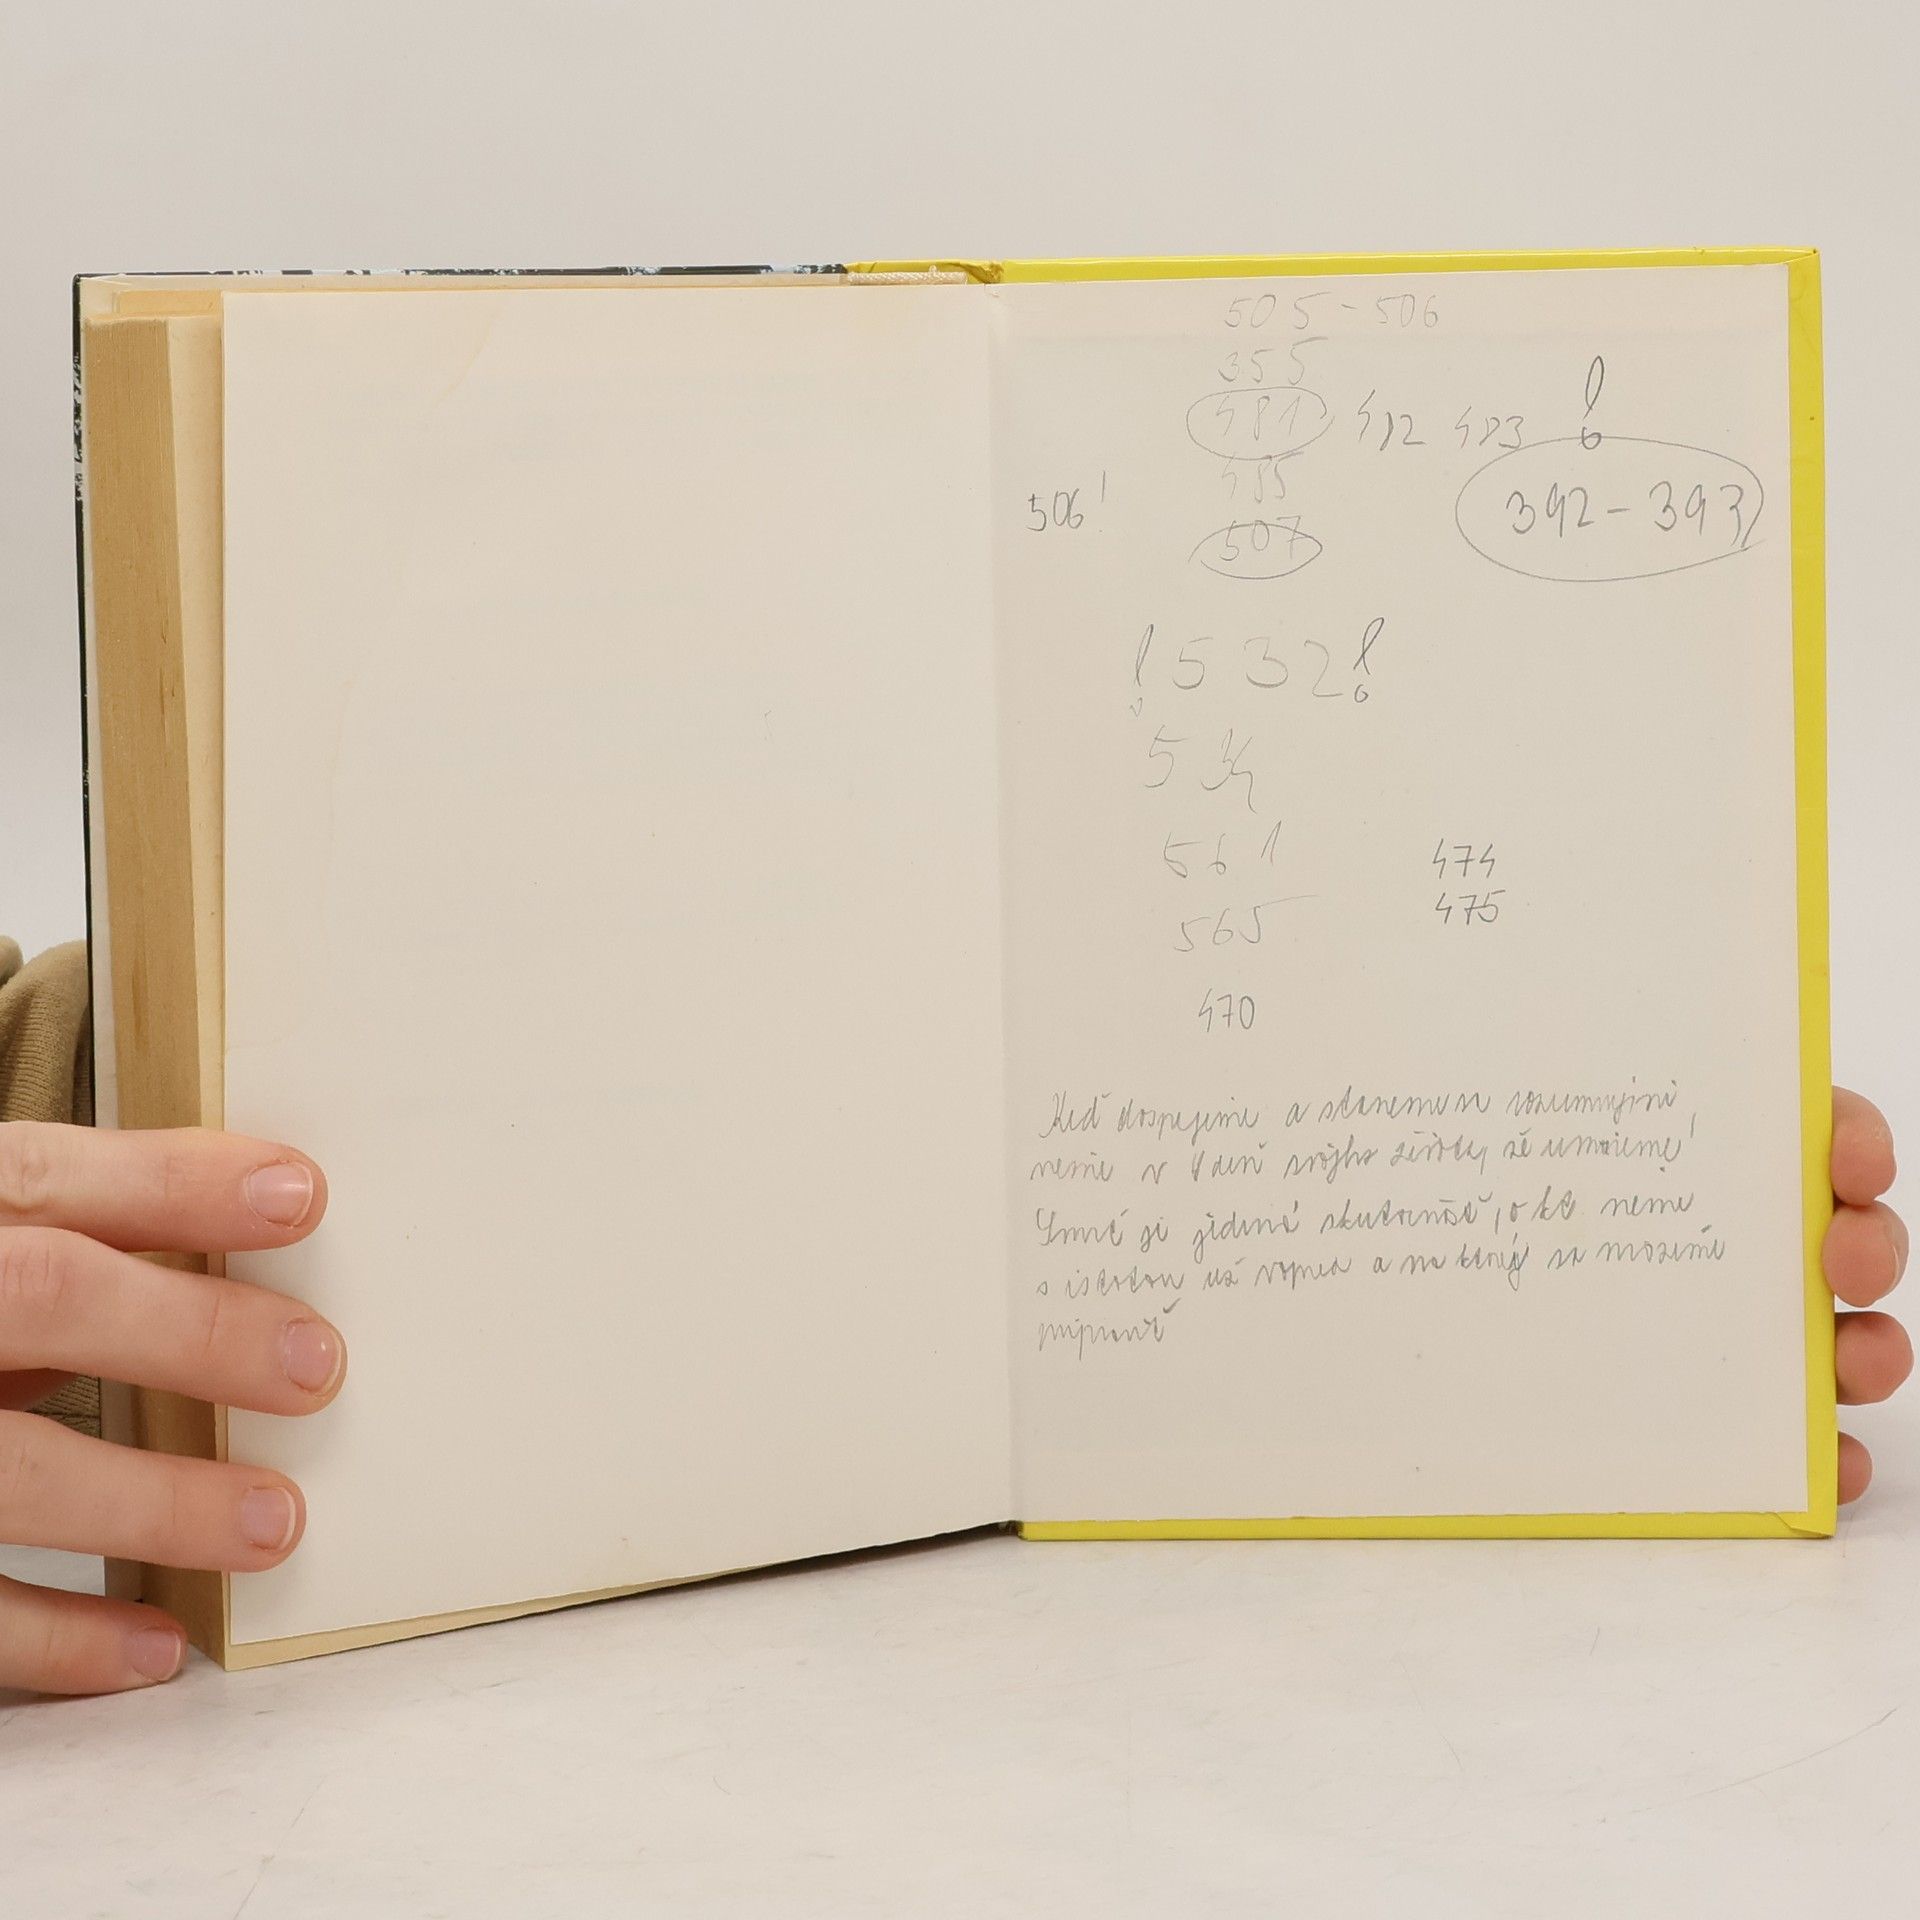 505 - 506
355
481 482 483 !
485
506!
507
392 - 393
! 532 !
534
561
565
474
475
470
Keď dospejeme a staneme sa rozumnými
vieme v deň svojho života, že umrieme!
Smrť je jediná skutočnosť, o kt. vieme
s istotou už vopred a na ktorú sa môžeme
pripraviť